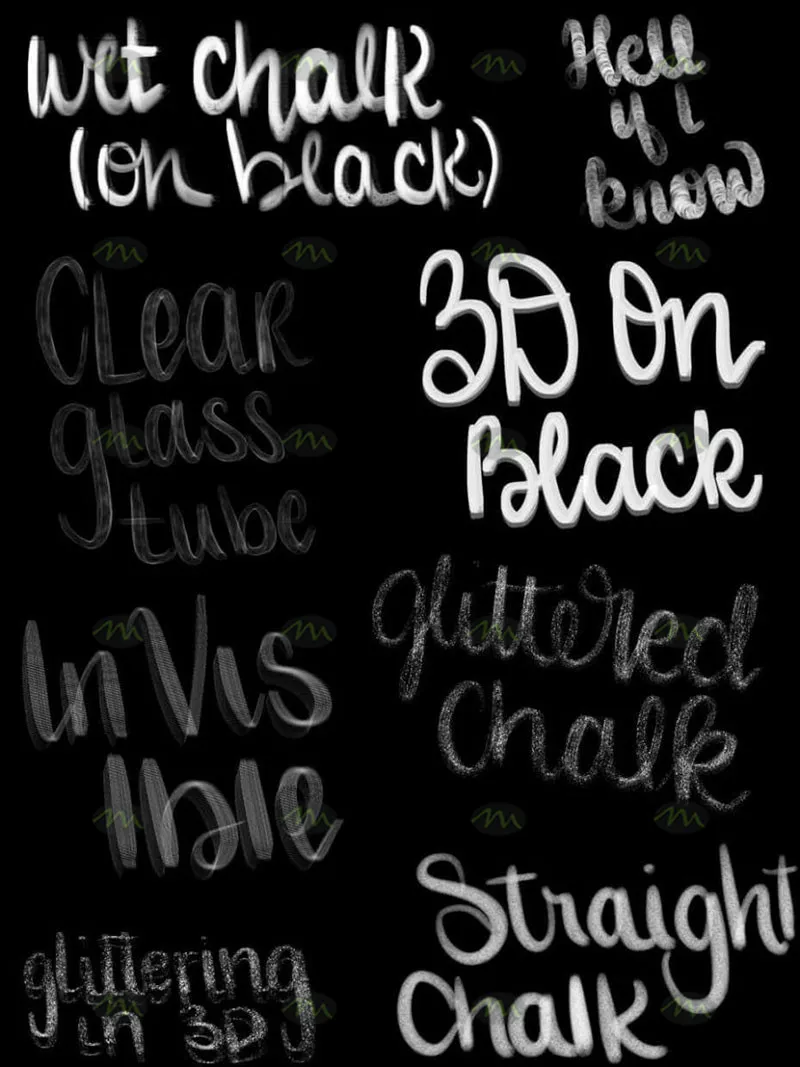 wet chalk
(on black)
Hell
y i
know
CLear
glass
tube
3D On
Black
InVis
Ible
glittered
Chalk
glittering
in 3D
Straight
Chalk